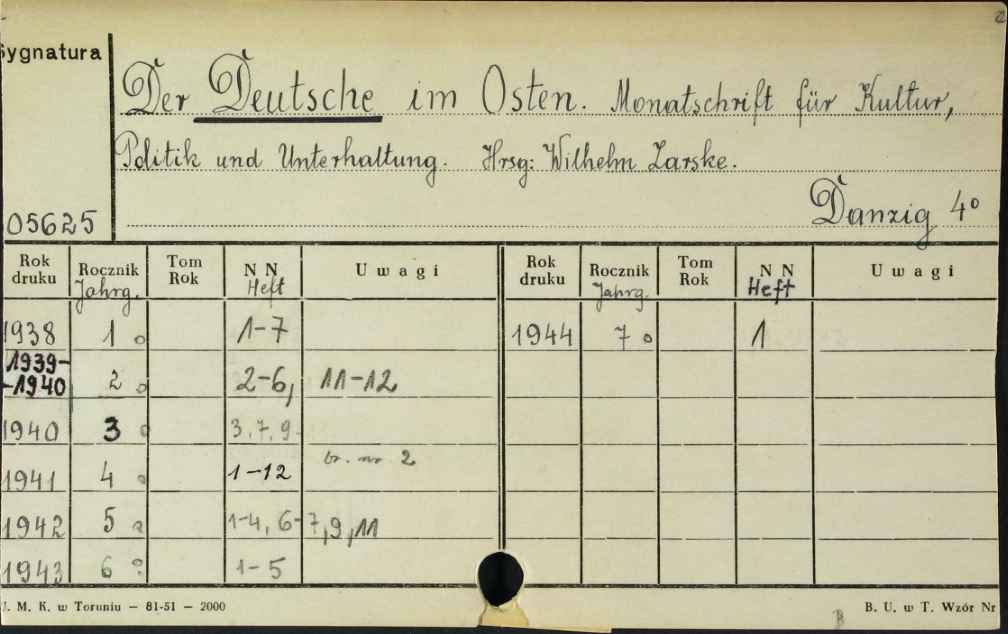 Sygnatura
Der Deutsche im Osten. Monatschrift für Kultur,
Politik und Unterhaltung. Hrsg: Wilhelm Zarske.
05625 Danzig 4°
Rok druku Rocznik Jahrg. Tom Rok N N Heft Uwagi Rok druku Rocznik Jahrg. Tom Rok N N Heft Uwagi
1938 1 o 1-7 1944 7 o 1
1939-
-1940 2 o 2-6, 11-12
1940 3 o 3,7,9
1941 4 o 1-12 br. nr 2
1942 5 1-4, 6-7,9,11
1943 6 1-5
U. M. K. w Toruniu – 81-51 – 2000 B B. U. w T. Wzór Nr